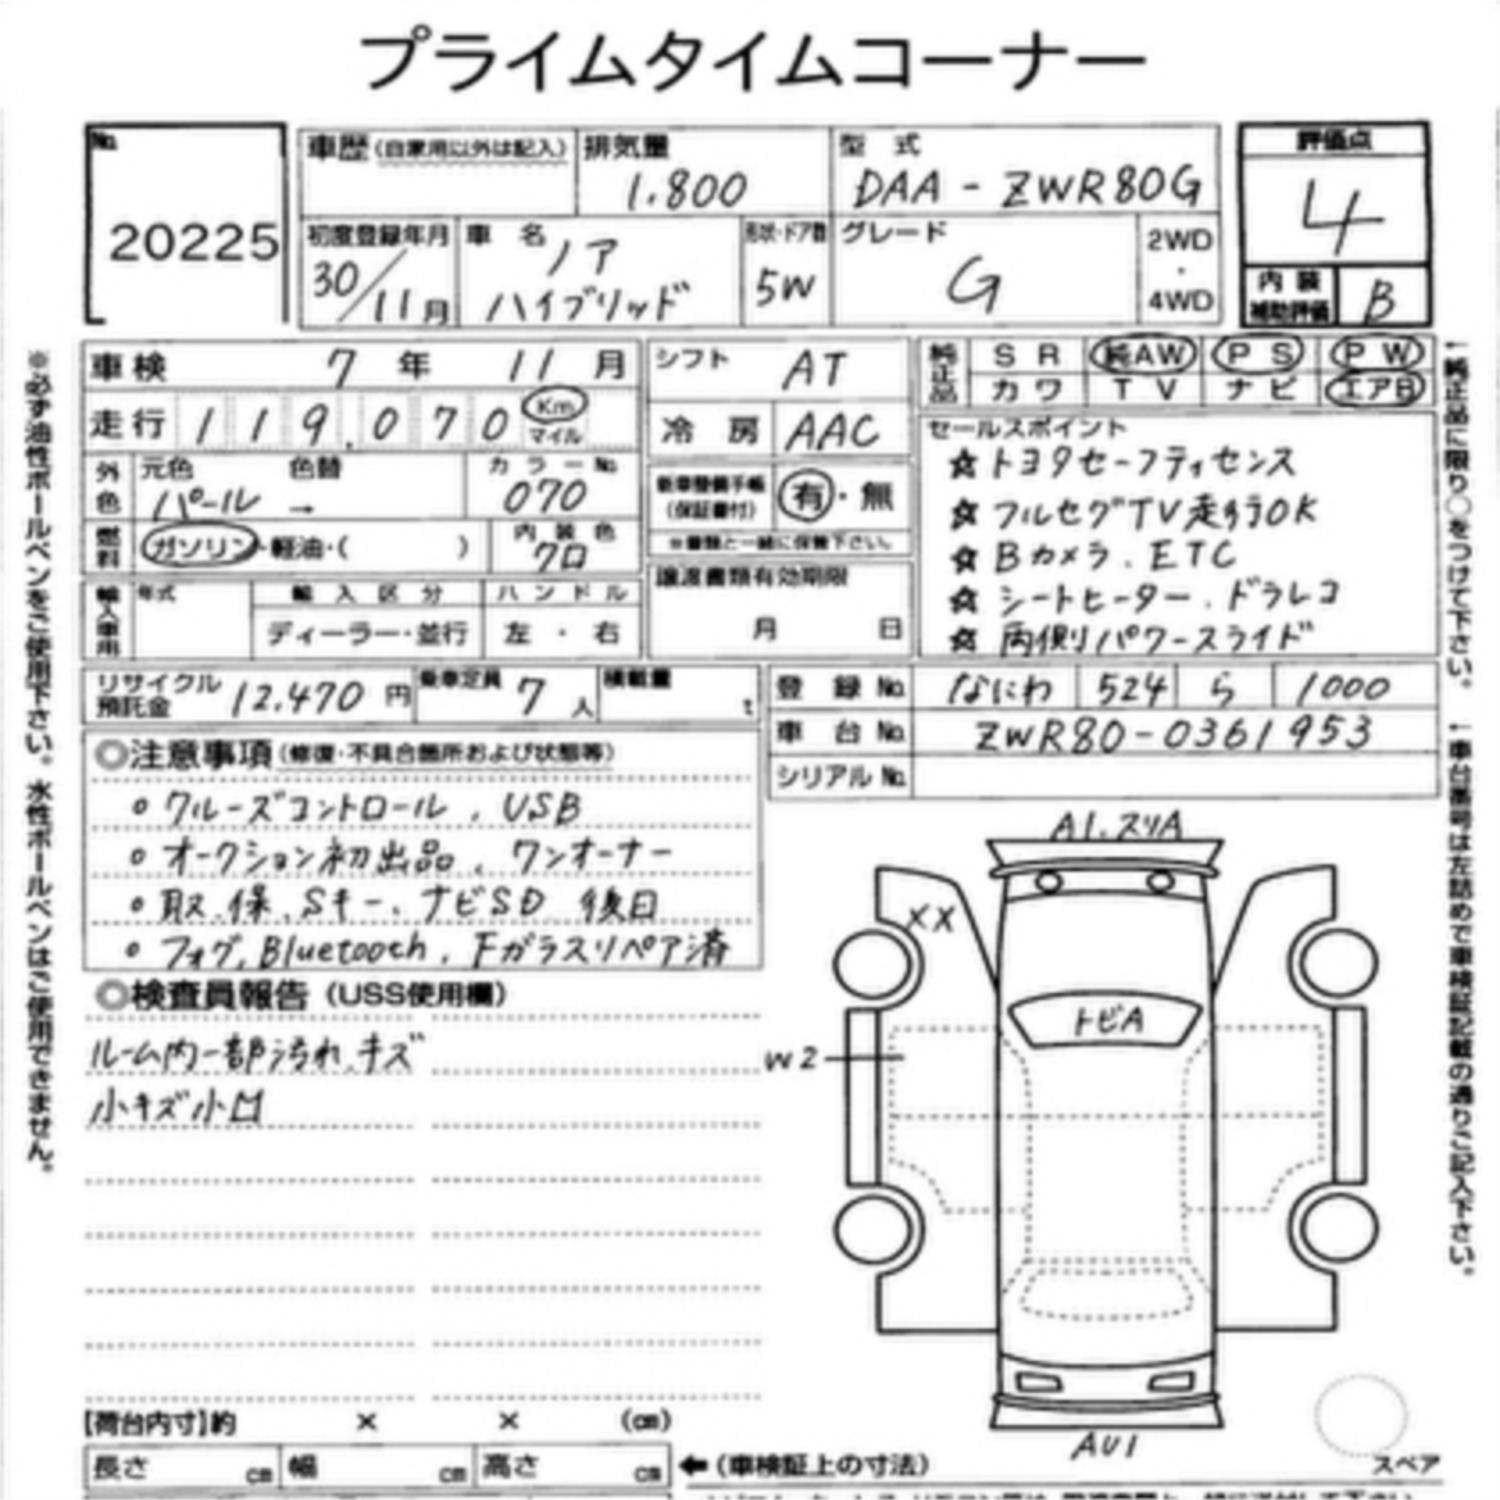 プライムタイムコーナー
No.
20225
車歴(自家用以外は記入)
排気量
1.800
型 式
DAA - ZWR80G
評価点
4
内装補助評価
B
初度登録年月
30/11月
車 名
ノア
ハイブリッド
形状・ドア数
5W
グレード
G
2WD
・
4WD
車検 7年 11月
走行 119.070 Km マイル
シフト AT
冷 房 AAC
純正品
SR 純AW PS PW
カワ TV ナビ エアB
外色
元色 色替
パール →
カラーNo.
070
燃料
ガソリン・軽油・( )
内装色
クロ
新車整備手帳
(保証書付)
有・無
※書類と一緒に保管下さい。
セールスポイント
☆ トヨタセーフティセンス
☆ フルセグTV走行OK
☆ Bカメラ. ETC
☆ シートヒーター. ドラレコ
☆ 両側パワースライド
輸入車用
年式
輸入区分
ハンドル
ディーラー・並行
左 ・ 右
譲渡書類有効期限
月 日
リサイクル預託金 12.470 円
乗車定員 7 人
積載量 t
登 録 No. なにわ 524 ら 1000
車 台 No. ZWR80-0361953
シリアル No.
◎注意事項(修復・不具合箇所および状態等)
○ クルーズコントロール, USB
○ オークション初出品, ワンオーナー
○ 取.保.Sキー.ナビSD 後日
○ フォグ, Bluetooth, Fガラスリペア済
◎検査員報告(USS使用欄)
ルーム内一部汚れ.キズ
小キズ小凹
A1.スリA
XX
トビA
W2
AU1
スペア
【荷台内寸】約 × × (cm)
長さ cm 幅 cm 高さ cm
←(車検証上の寸法)
※必ず油性ボールペンをご使用下さい。水性ボールペンはご使用できません。
←純正品に限り○をつけて下さい。
←車台番号は左詰めで車検証記載の通りご記入下さい。